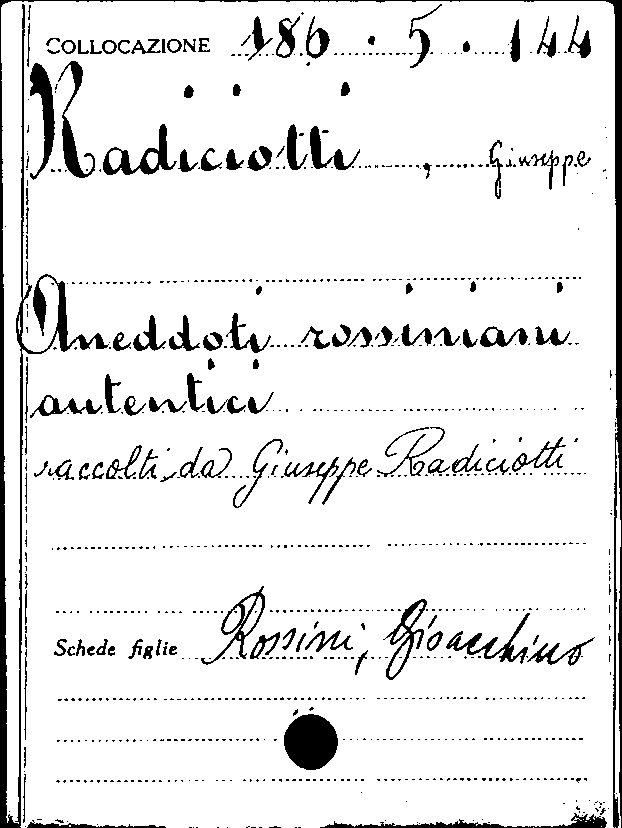 COLLOCAZIONE 186.5.144
Radiciotti, Giuseppe
Aneddoti rossiniani
autentici
raccolti da Giuseppe Radiciotti
Schede figlie Rossini, Gioacchino